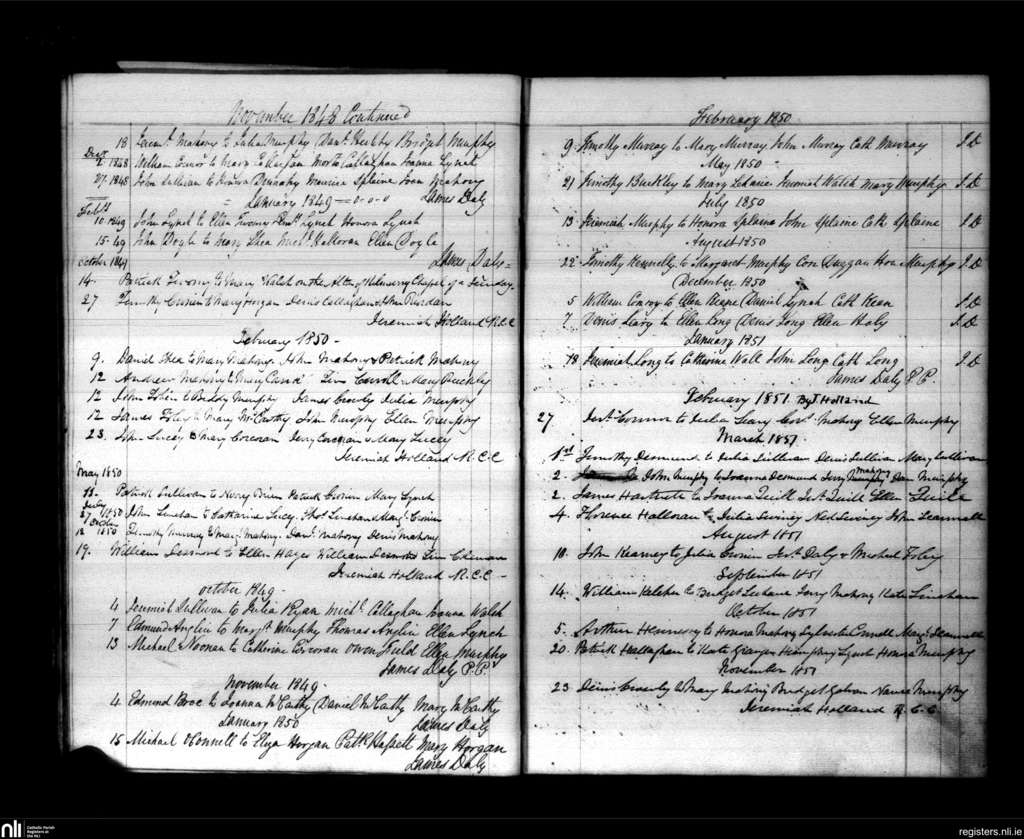 November 1848 Continued
18 Mahony to Julia Murphy Danl Bridget Murphy
Decr 2 1848 William to Mary Callaghan Joana Lynch
27 1848 John Sullivan to Honora Maurice Splaine Joan Mahony
= January 1849 =0-0-0 James Daly
Feby 10 1849 John Lynch to Ellen Twomy Lynch Honora Lynch
15 49 John Doyle to Mary Shea Michl Halloran Ellen Doyle
October 1849 James Daly =
14. Patrick to Mary Walsh on the Altar of Chapel of a Sunday
27 Timothy to Mary Horgan Denis Callaghan & John Riordan
Jeremiah Holland R.C.C
February 1850 -
9. Daniel Shea to Mary Mahony. John Mahony & Patrick Mahony
12 Andrew Mahony to Mary Tim Carroll & Mary Buckley
12 John Tobin to Biddy Murphy James Crowly Julia Murphy
12 James Foley to Mary McCarthy John Murphy Ellen Murphy
23. John Lucey to Mary Corcoran Jery Corcoran & Mary Lucey
Jeremiah Holland R.C.C
May 1850
11. Patrick Sullivan to Norry Patrick Cronin Mary Lynch
July 27 1850 John Linehan to Catharine Lucy. Thos Linehan Margt Cronin
October 12 1850 Timothy to Margt Mahony. Danl Mahony Denis Mahony
19. William Desmond to Ellen Hayes William Desmond Tim
Jeremiah Holland R.C.C -
October 1849 -
4 Jeremiah Sullivan to Julia Ryan Michl Callaghan Joanna Walsh
7 Edmund Anglin to Margt Murphy Thomas Anglin Ellen Lynch
13 Michael Noonan to Catherine Corcoran Owen Ellen Murphy
James Daly P.P.
November 1849 -
4 Edmond to Joanna McCarthy Daniel McCarthy Mary McCarthy
January 1850 James Daly
15 Michael O'Connell to Eliza Horgan Patk Mary Horgan
James Daly
February 1850
9 Timothy Murray to Mary Murray John Murray Cath Murray J.D
May 1850 -
21 Timothy Buckley to Mary Lehane Jeremiah Walsh Mary Murphy J.D
July 1850
13 Jeremiah Murphy to Honora Splaine John Splaine Cath Splaine J.D
August 1850
22 Timothy Kennelly to Margaret Murphy Con Duggan Hon Murphy J.D
December 1850
5 William Conroy to Ellen Keane Daniel Lynch Cath Kean J.D
7 Denis Leary to Ellen Long Denis Long Ellen Haly J.D
January 1851
18 Jeremiah Long to Catherine Wall John Long Cath Long J.D
James Daly P.P.
February 1851 By J Holland
27 Connor to Julia Leary Mahony Ellen Murphy
March 1851
1st Timothy Desmond to Julia Sullivan Denis Sullivan Mary Sullivan
2. John Murphy to Joanna Desmond Jery Mahony Dan Murphy
2. James to Joanna Quill Quill Ellen Quill
4. Florence Halloran to Julia Ned John
August 1851
10. John Kearney to Julia Cronin Daly & Michael Foley
September 1851
14. William Keleher to Bridget Lehane Jerry Mahony Kate Lineham
October 1851
5. Arthur Hennessy to Honora Mahony Sylvester Margt
20. Patrick Hallaghan to Kate Humphrey Lynch Honora Murphy
November 1851
23 Denis Crowly to Mary Mahony Bridget Nance Murphy
Jeremiah Holland R.C.C.
nli Catholic Parish Registers at the NLI
registers.nli.ie